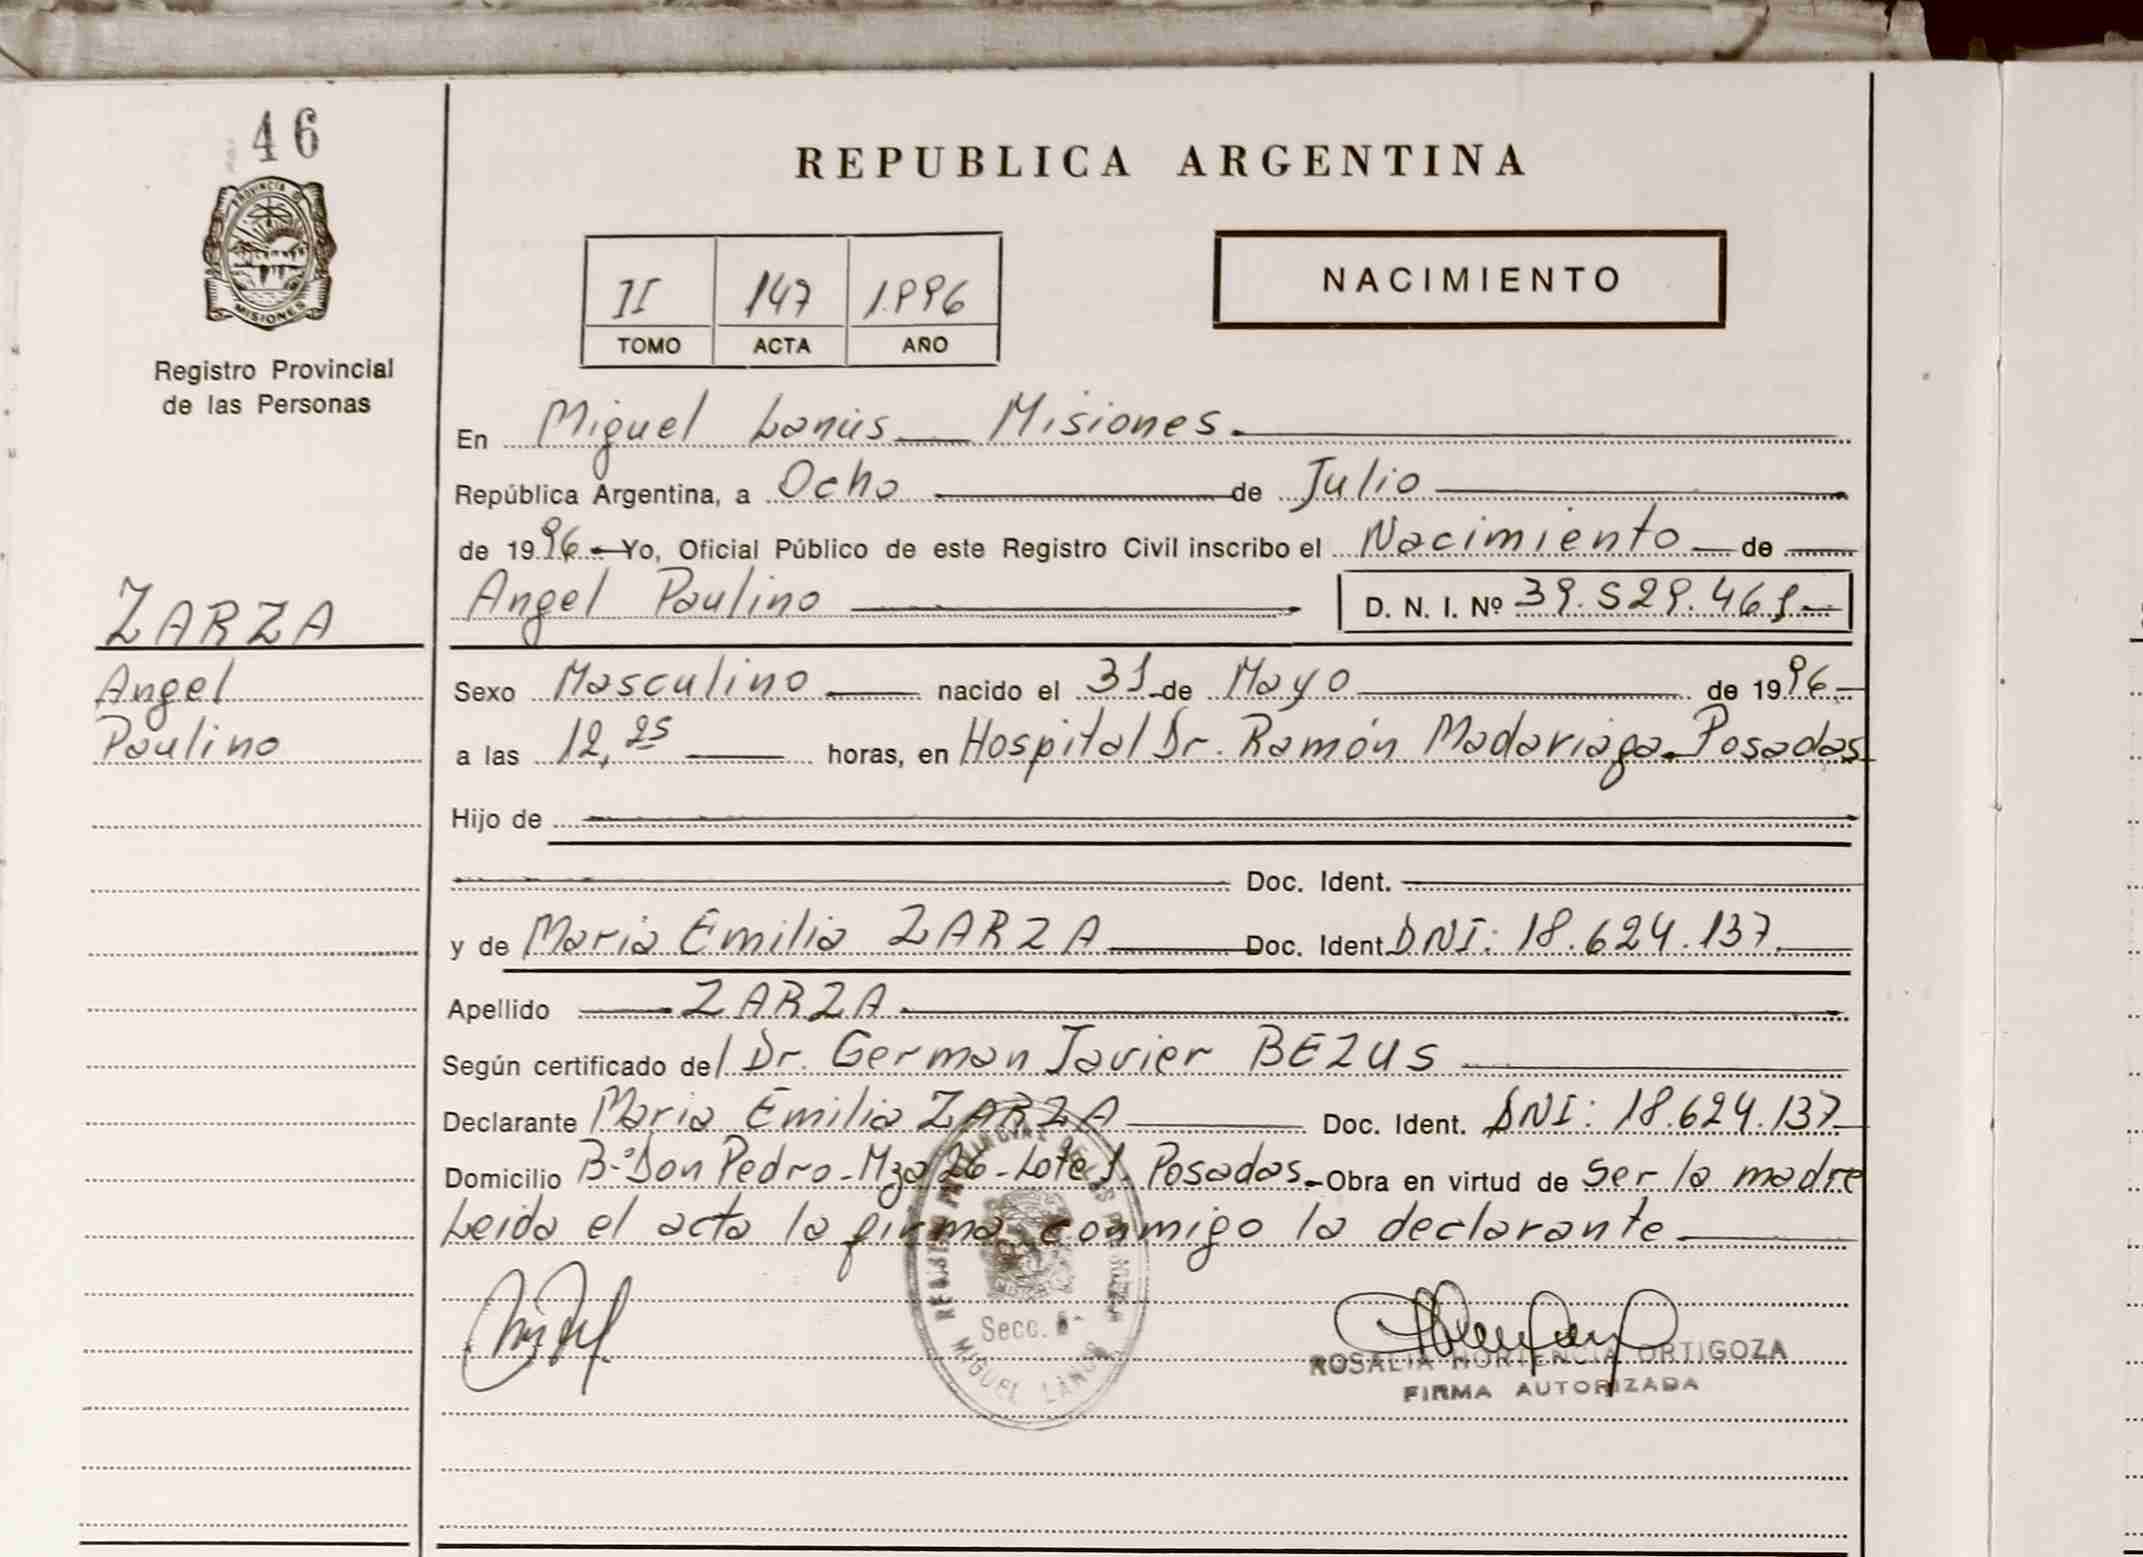 46
PROVINCIA DE
MISIONES
Registro Provincial
de las Personas
ZARZA
Angel
Paulino
REPUBLICA ARGENTINA
II 147 1.996
TOMO ACTA AÑO
NACIMIENTO
En Miguel Lanús Misiones.
República Argentina, a Ocho de Julio
de 1996 Yo, Oficial Público de este Registro Civil inscribo el Nacimiento de
Angel Paulino D. N. I. Nº 39.529.461
Sexo Masculino nacido el 31 de Mayo de 1996
a las 12,25 horas, en Hospital Dr. Ramón Madariaga Posadas
Hijo de
Doc. Ident.
y de Maria Emilia ZARZA Doc. Ident. DNI: 18.624.137
Apellido ZARZA
Según certificado del Dr. German Javier BEZUS
Declarante Maria Emilia ZARZA Doc. Ident. DNI: 18.624.137
Domicilio B·º Don Pedro - Mza 26 - Lote 1 Posadas. Obra en virtud de ser la madre
Leida el acta la firma conmigo la declarante
Secc.
MIGUEL LANUS
ROSALIA HORTENCIA ORTIGOZA
FIRMA AUTORIZADA